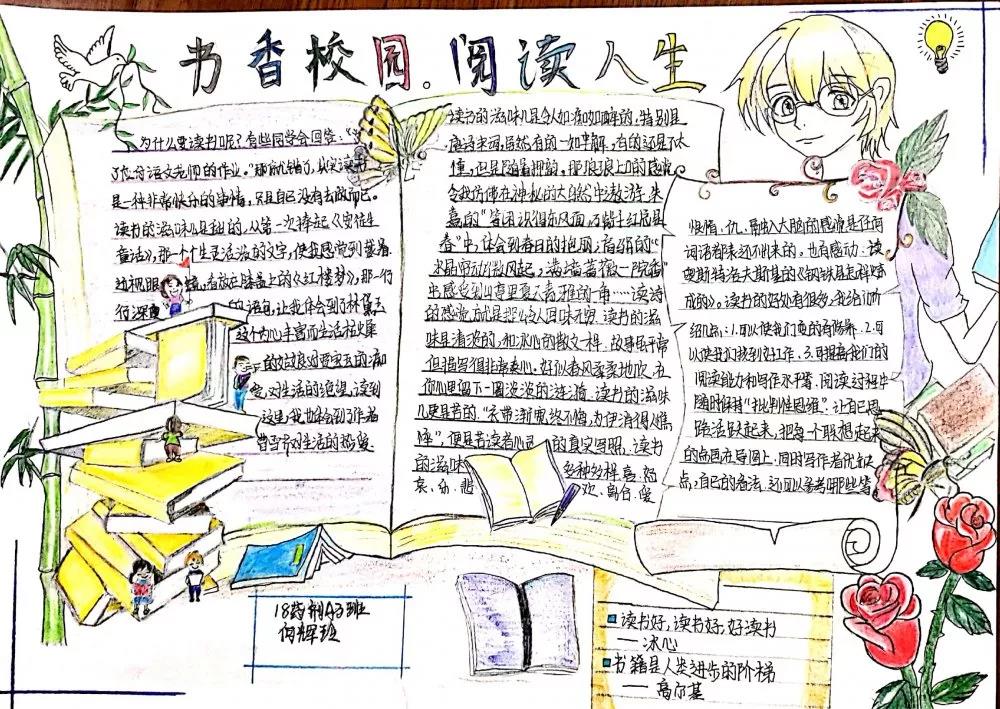 书香校园。阅读人生
为什么要读书呢?有些同学会回答:“为
了应付语文老师的作业。”那就错了,其实读书
是一种非常快乐的事情,只是自己没有去做而已。
读书的滋味儿是甜的,从第一次捧起《窦桂生
童话》,那一个个生灵活泼的文字,使我感觉到
边视眼 ,看放在膝盖上的《红楼梦》,那一行
行深 的语句,让我体会到了林黛玉
这个内心丰富而生活
的 黛玉的
,对生活的绝望,读到
这里,我也体会到了作者
曹雪芹对生活的
读书的滋味儿是令人如痴如醉的,特别是
唐诗宋词,虽然有的一知半解,有的还是不太
懂,但是随着押韵,那浪浪上口的感觉
令我仿佛在神秘的大自然中遨游,朱
熹的“等闲识得东风面,万紫千红总是
春”中,体会到春日的艳丽;高骈的“
水晶帘动微风起,满架蔷薇一院香”
中感受到 夏天 雅的一角……读诗
的感觉 令人回味无穷。读书的滋
味是清淡的,如冰心的散文一样,故事虽平常
但描写得非常柔心,好似春风柔柔地吹,在
你心里留下一圈淡淡的涟漪。读书的滋味
儿更是苦的。“衣带渐宽终不悔,为伊消得人憔
悴”,便是苦读者心 的真实写照。读书
的滋味 多种多样,喜、怒、
哀、 、悲 欢、离、合、
快情、仇、 出入大脑的感觉是任何
词语都表达不出来的,也有感动,读
奥斯特洛夫斯基的《钢铁是怎样炼
成的》,读书的好处有很多,我给大家
绍几点:1.可以使我们变的有修养、2.可
以使我们找到好工作、3.可提高我们的
阅读能力和写作水平等,阅读过程中
随时保持“批判性思维”,让自己思
路活跃起来,把每个联想起来
的点画在导图上,同时写作者优缺
点,自己的看法,还可以参考哪些等
18药剂43班
何辉班
读书好,读书好,好读书
——冰心
书籍是人类进步的阶梯
——高尔基